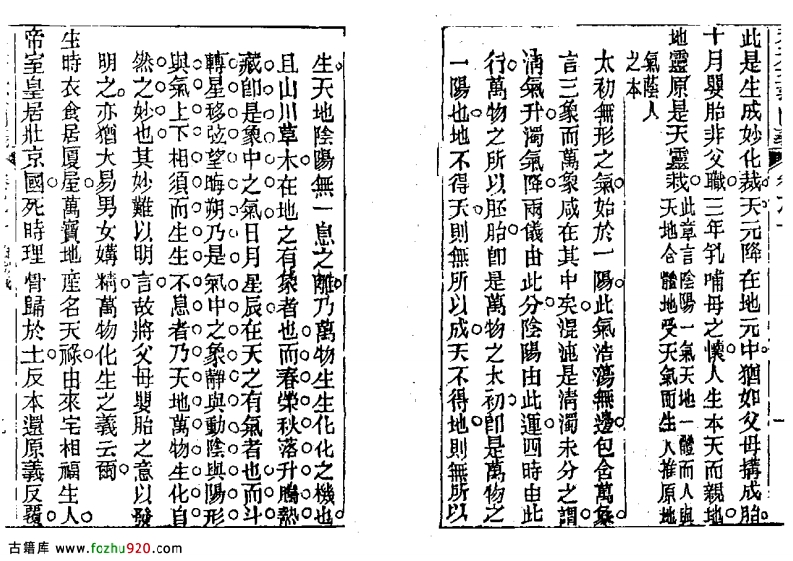 此是生成妙化裁天元降在地元中猶如父母搆成胎
十月嬰胎非父職三年乳哺母之懷人生本天而親地
地靈原是天靈栽此章言陰陽一氣天地一體而人與
天地合體地受天氣而生人推原地
氣蔭人
之本
太初無形之氣始於一陽此氣浩蕩無邊包含萬象
言三象而萬象咸在其中矣混沌是清濁未分之謂
淸氣升濁氣降兩儀由此分陰陽由此運四時由此
行萬物之所以胚胎卽是萬物之太初卽是萬物之
一陽也地不得天則無所以成天不得地則無所以
生天地陰陽無一息之離乃萬物生生化化之機也
且山川草木在地之有象者也而春榮秋落升騰熱
藏卽是象中之氣日月星辰在天之有氣者也而斗
轉星移弦望晦朔乃是氣中之象靜與動陰與陽形
與氣上下相須而生生不息者乃天地萬物生化自
然之妙也其妙難以明言故將父母嬰胎之意以發
明之亦猶大易男女媾精萬物化生之義云爾
生時衣食居廈屋萬寶地產名天祿由來宅相福生人
帝室皇居壯京國死時理骨歸於土反本還原義反覆
古籍库 www.fozhu920.com